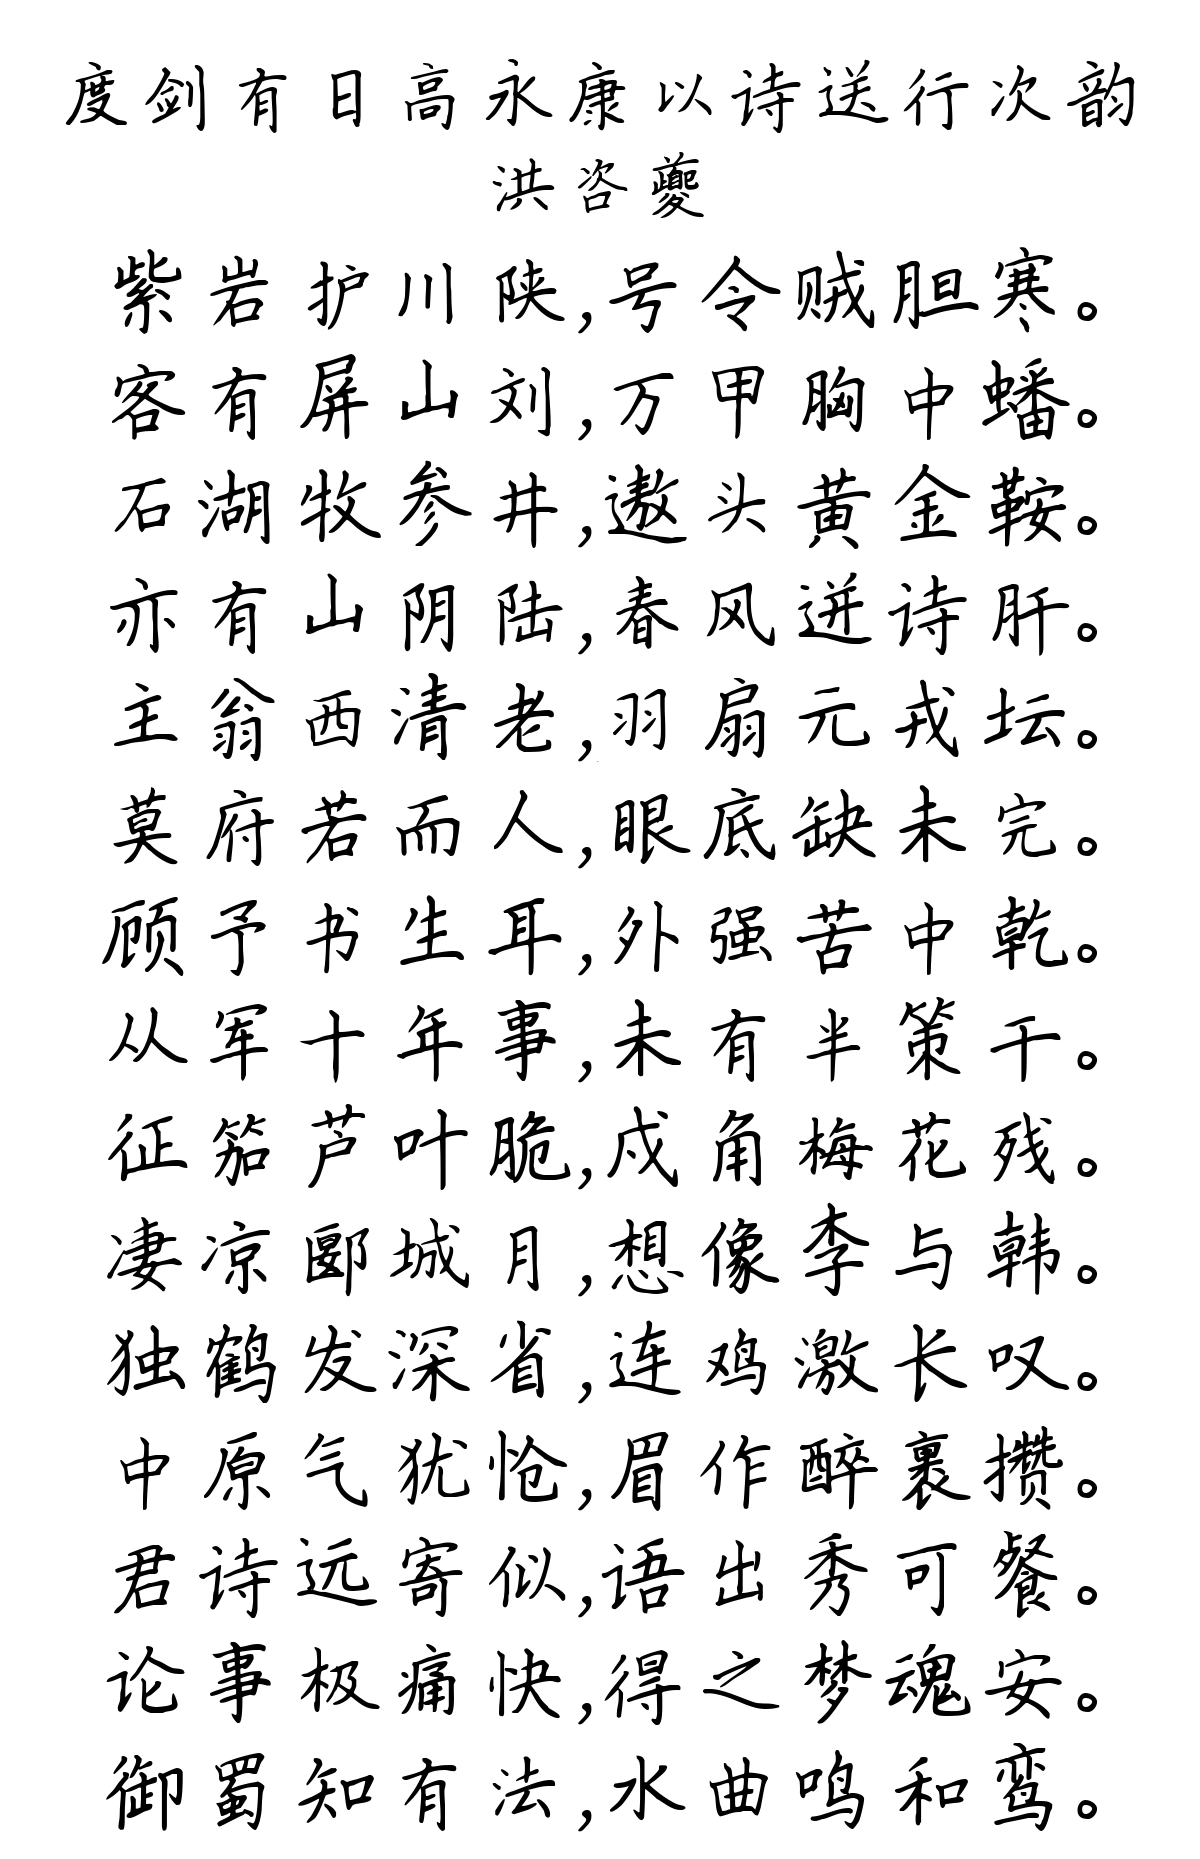 度剑有日高永康以诗送行次韵
洪咨夔
紫岩护川陕,号令贼胆寒。
客有屏山刘,万甲胸中蟠。
石湖牧参井,遨头黄金鞍。
亦有山阴陆,春风迸诗肝。
主翁西清老,羽扇元戎坛。
莫府若而人,眼底缺未完。
顾予书生耳,外强苦中乾。
从军十年事,未有半策干。
征笳芦叶脆,戍角梅花残。
凄凉郾城月,想像李与韩。
独鹤发深省,连鸡激长叹。
中原气犹怆,眉作醉裹攒。
君诗远寄似,语出秀可餐。
论事极痛快,得之梦魂安。
御蜀知有法,水曲鸣和鸾。